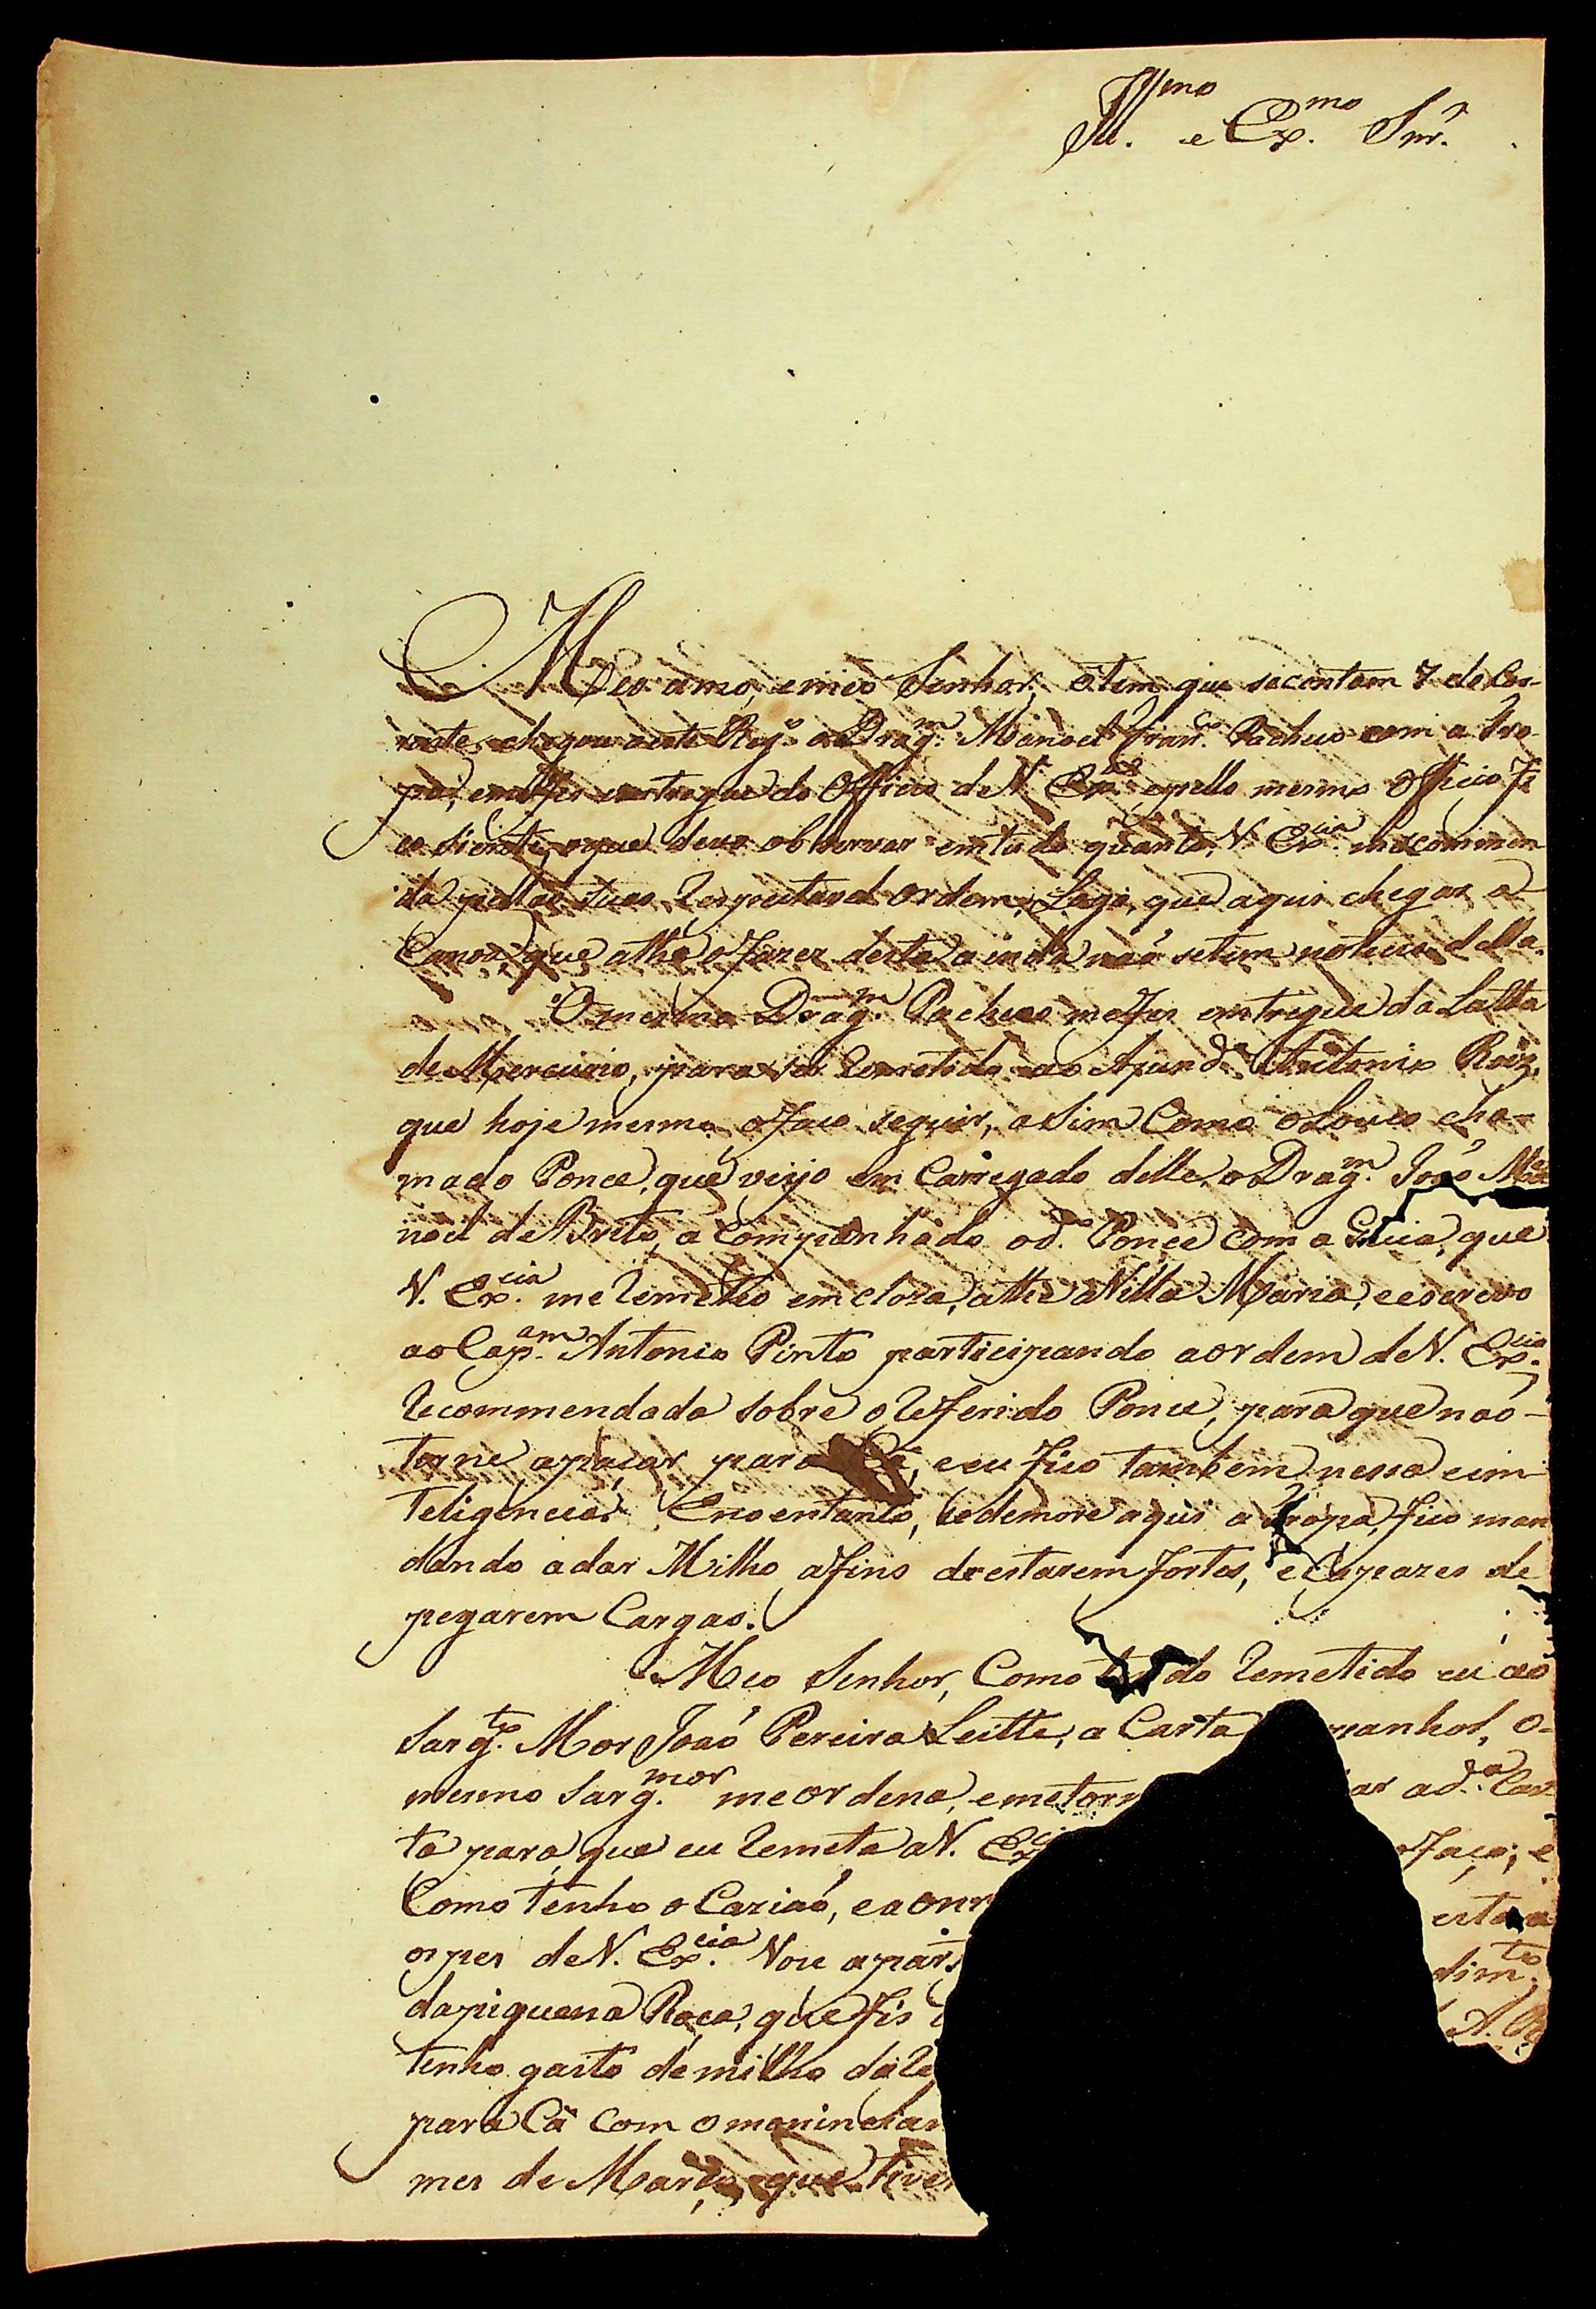 Ill.mo e Ex.mo Snr.
Meo amo, e meo Senhor, õtem que se contam 7 do Cor-
rente, chegou aeste Reg.o o Drag.m Manoel Fran.co Pacheco com a tro-
pa, e me fes entregue do Officio de V. Ex.cia, e pello mesmo Officio fi
co siente, o que devo observar em tudo quanto V. Ex.cia me recommen
da pellas suas Respeitaves Ordens, Logo que aqui chegar a
Canoa, que athe o fazer desta ainda naõ se tem noticia della.
O mesmo Drag.m Pacheco me fes entregue da Latta
de Mercurio, para ser Remetido ao Ajund.e Antonio Roiz,
que hoje mesmo o faço seguir, asim Como o Louco cha-
mado Ponce, que veijo em Carregado delle, o Drag.m João Ma
noel de Brito, a Companhado o d.o Ponce com a Guia, que
V. Ex.cia me Remetteo em cloza, athe a Villa Maria, e escrevo
ao Cap.am Antonio Pinto participando a ordem de V. Ex.cia
Recommendada sobre o Referido Ponce, para que naõ-
torne a paçar para Cá, e eu fico tambem nessa eim
teligencia. Enoentanto, se demore aqui a tropa, fico man
dando a dar Milho afins de estarem fortes, e Capazes de
pegarem Cargas.
Meo Senhor, Como do Remetido eu ao
Sarg.to Mor Joaõ Pereira Leitte, a Carta panhol, o-
mesmo Sarg.mor me ordena, e me torn ar a d.a Car
ta para que eu Remeta a V. Ex.ci o faço; e
Como tenho o Caziaõ, e a onr esta a
os pes de V. Ex.cia Vou a par dim.to
da piquena Roça, que fis A. R
tenho gasto de milho da Re
para Cá com o manincian
mes de Março, que tive